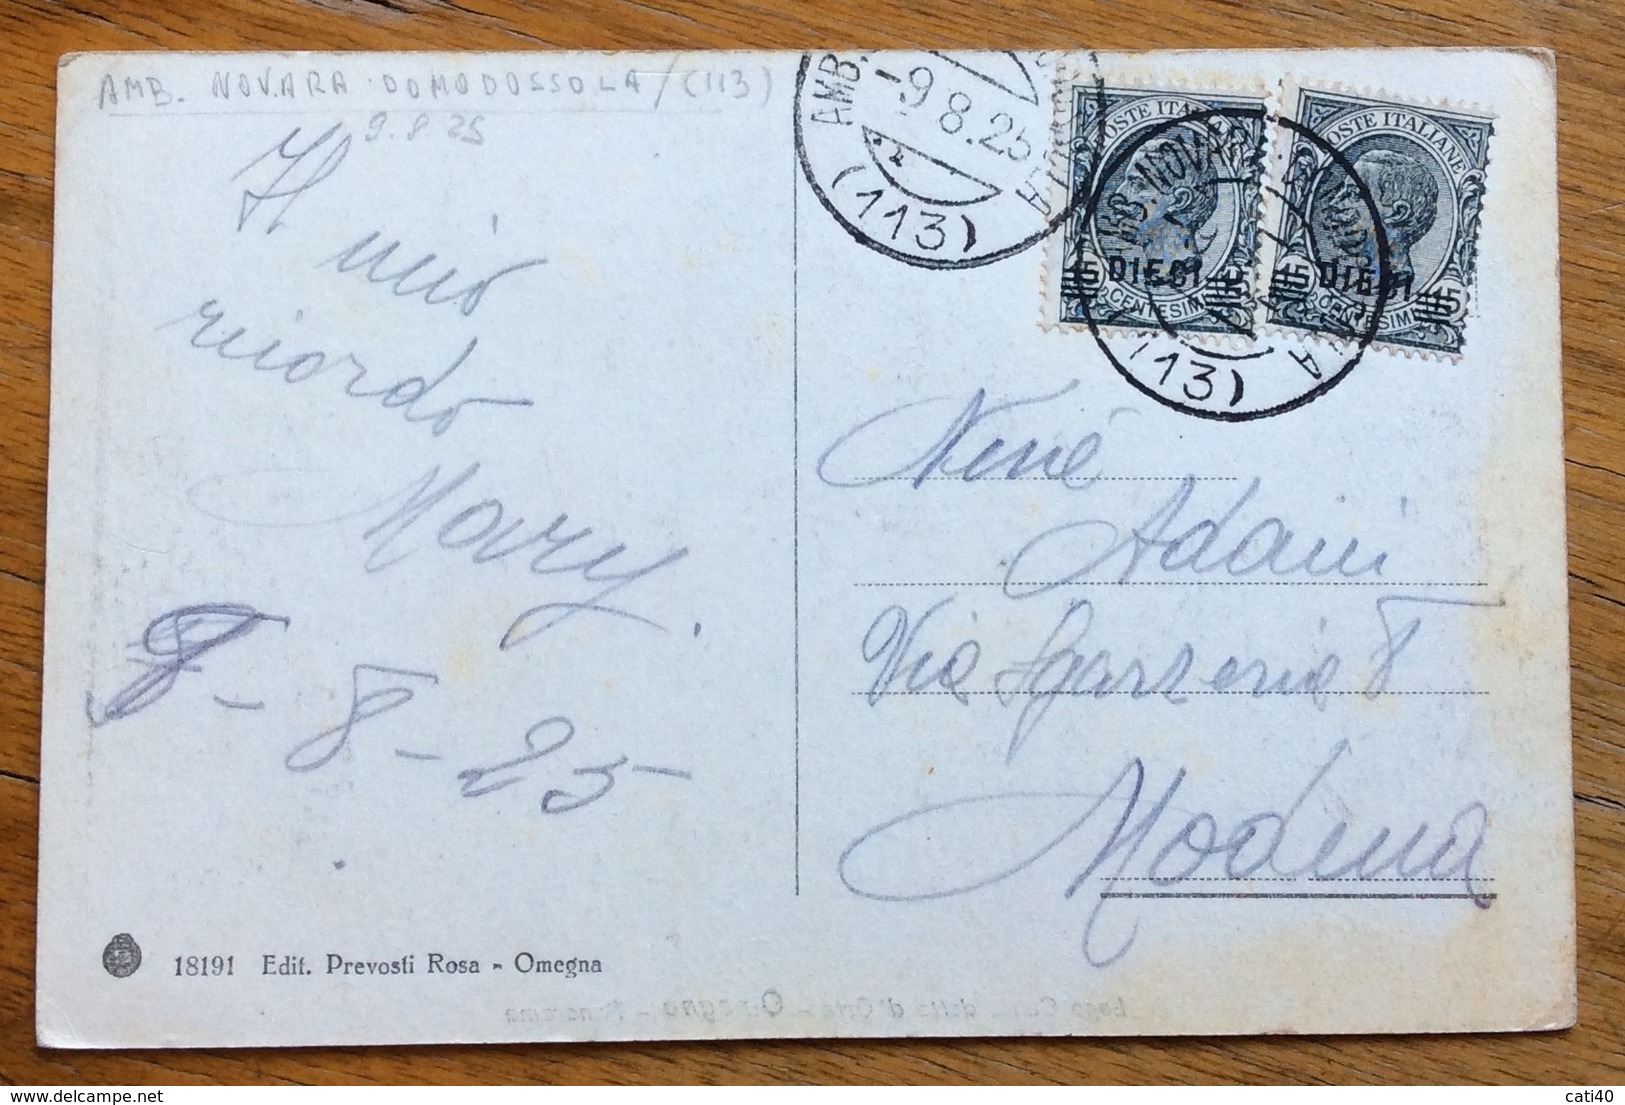 AMB. NOVARA DOMODOSSOLA / (113)
9.8.25
Il mio
ricordo
Mary.
8-25
18191 Edit. Prevosti Rosa - Omegna
AMB.
-9.8.25
(113)
POSTE ITALIANE
DIECI
15 15
CENTESIMI
POSTE ITALIANE
DIECI
15 15
CENTESIMI
AMB. NOVARA
(113)
Nené
Adani
Via Sgarzeria 8
Modena
Omegna - Panorama
cati40